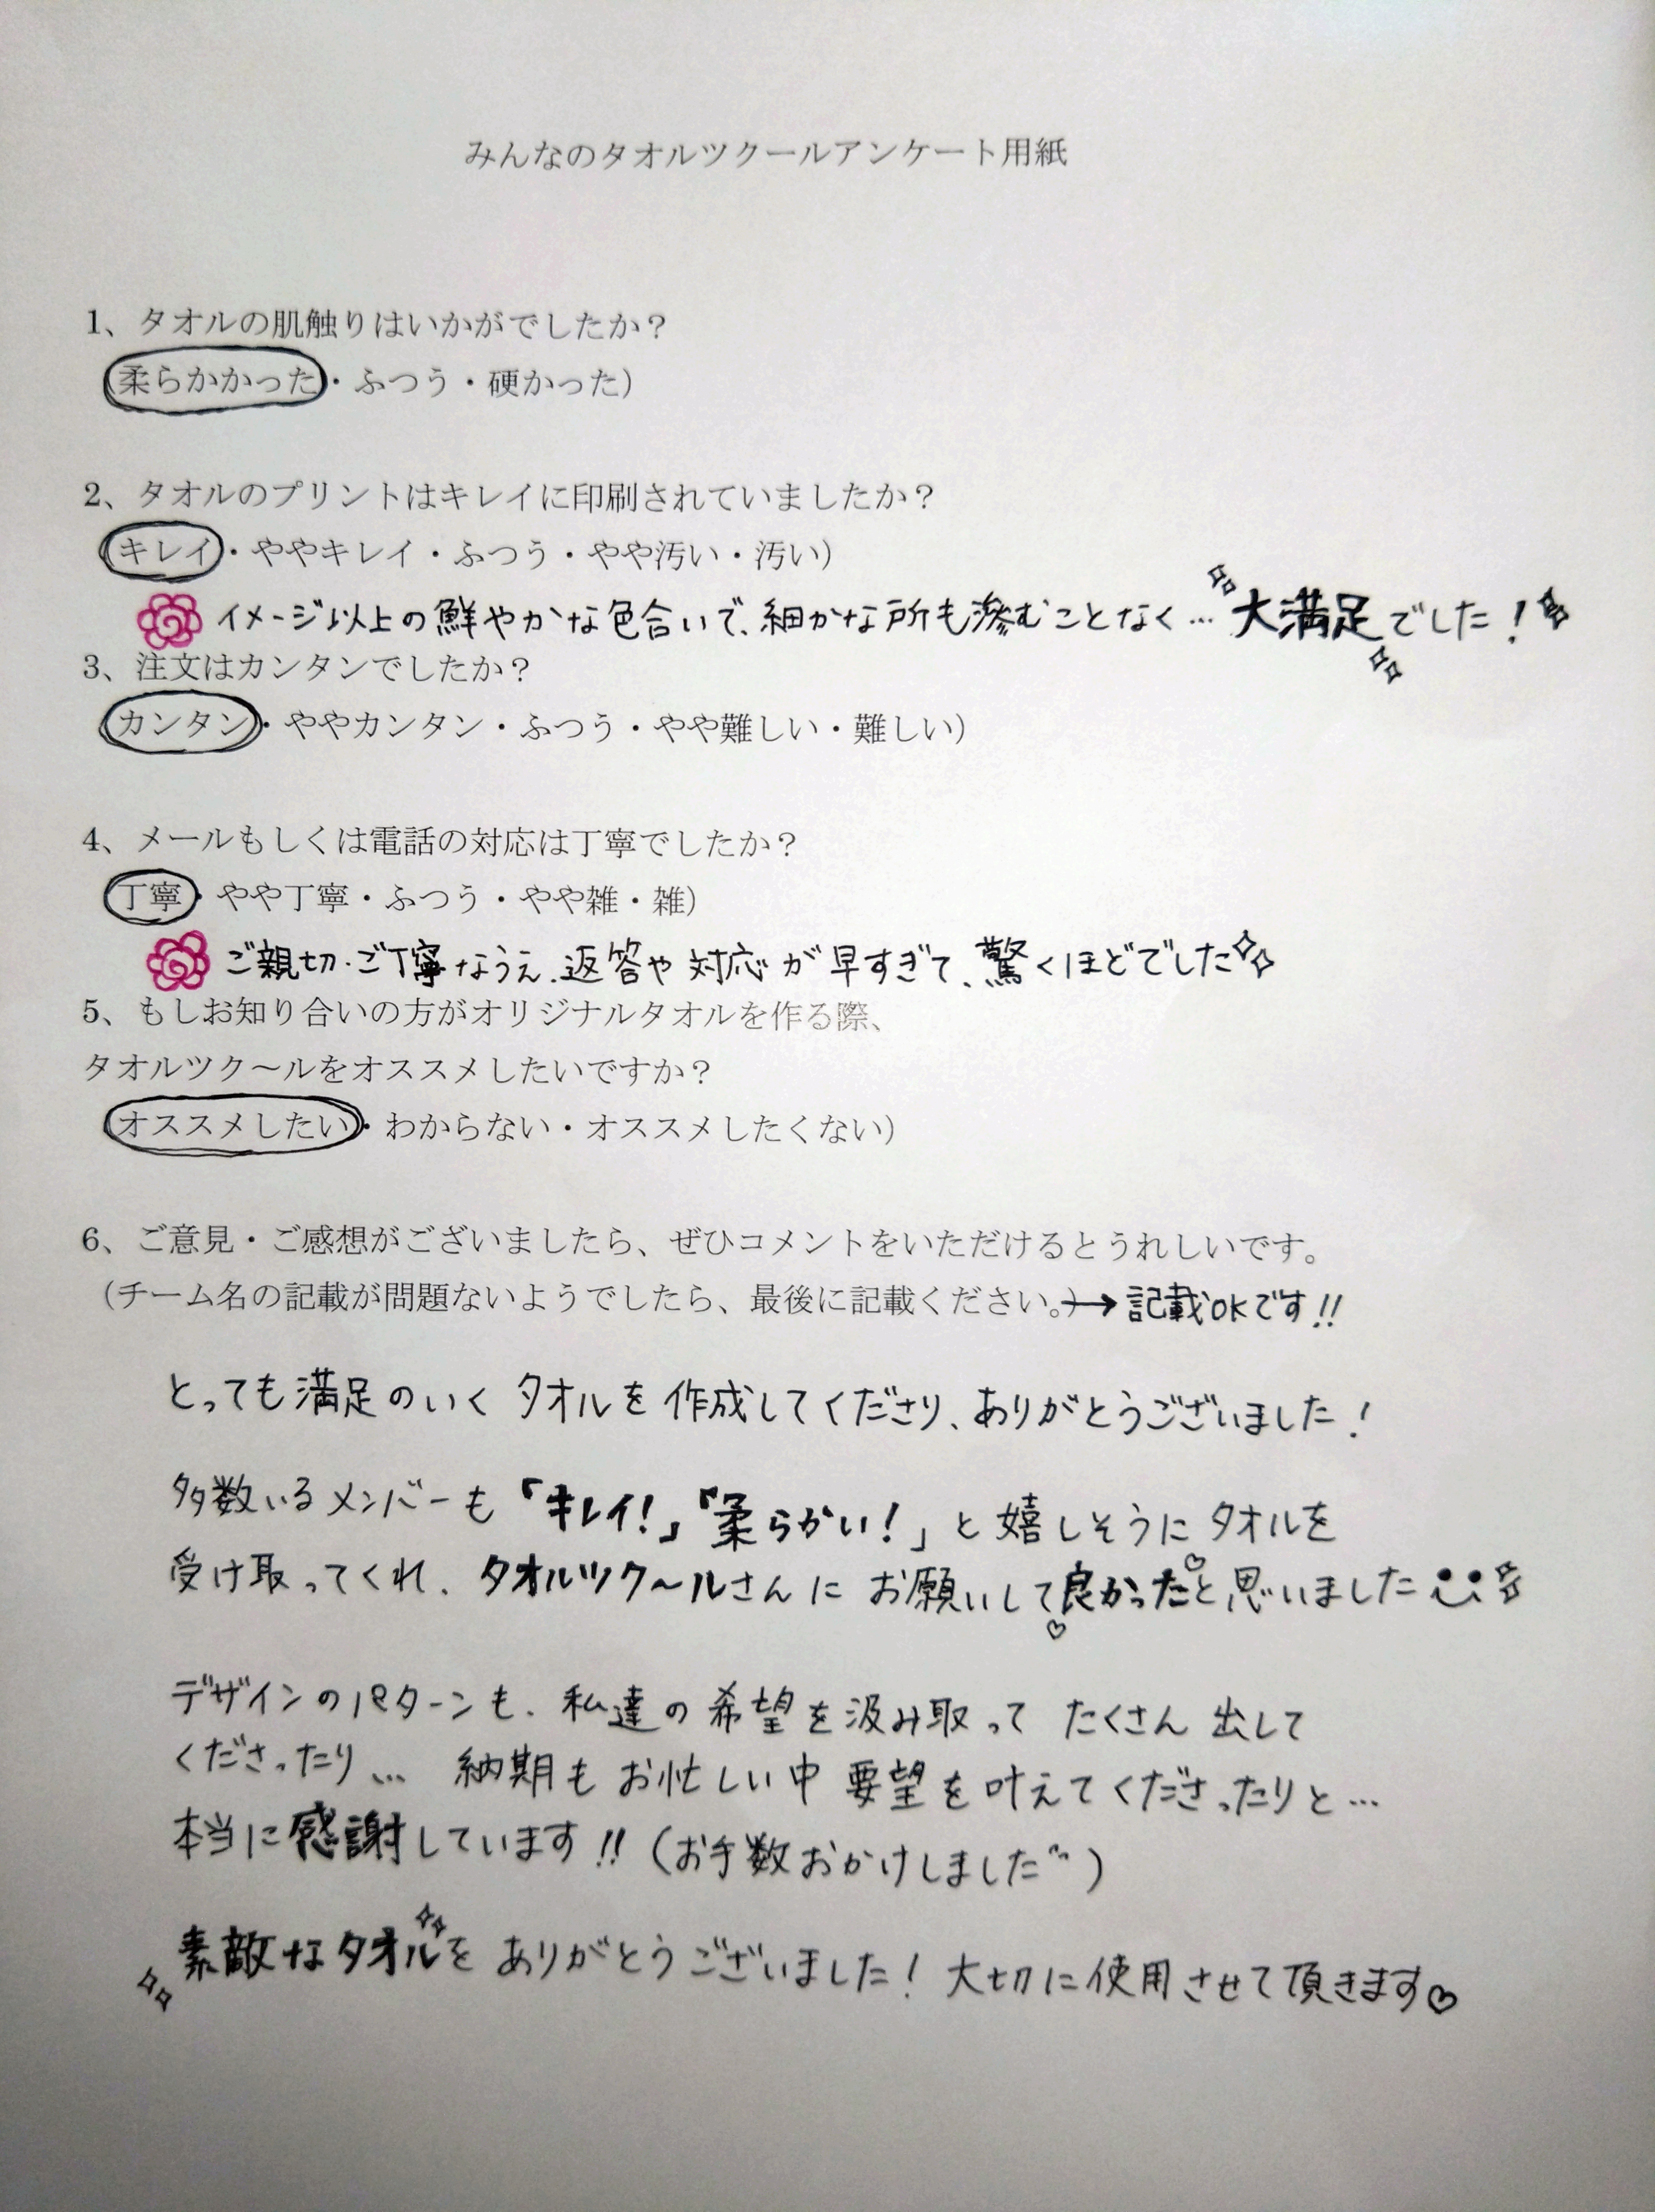 みんなのタオルツクールアンケート用紙
1、タオルの肌触りはいかがでしたか？
(柔らかかった・ふつう・硬かった)
2、タオルのプリントはキレイに印刷されていましたか？
(キレイ・ややキレイ・ふつう・やや汚い・汚い)
イメージ以上の鮮やかな色合いで、細かな所も滲むことなく…大満足でした！
3、注文はカンタンでしたか？
(カンタン・ややカンタン・ふつう・やや難しい・難しい)
4、メールもしくは電話の対応は丁寧でしたか？
(丁寧・やや丁寧・ふつう・やや雑・雑)
ご親切・ご丁寧なうえ、返答や対応が早すぎて、驚くほどでした
5、もしお知り合いの方がオリジナルタオルを作る際、
タオルツク～ルをオススメしたいですか？
(オススメしたい・わからない・オススメしたくない)
6、ご意見・ご感想がございましたら、ぜひコメントをいただけるとうれしいです。
(チーム名の記載が問題ないようでしたら、最後に記載ください。)→記載OKです!!
とっても満足のいくタオルを作成してくださり、ありがとうございました！
多数いるメンバーも「キレイ！」「柔らかい！」と嬉しそうにタオルを
受け取ってくれ、タオルツク～ルさんにお願いして良かった♡と思いました
デザインのパターンも、私達の希望を汲み取ってたくさん出して
くださったり… 納期もお忙しい中要望を叶えてくださったりと…
本当に感謝しています!!(お手数おかけしました〃)
素敵なタオルをありがとうございました！大切に使用させて頂きます♡